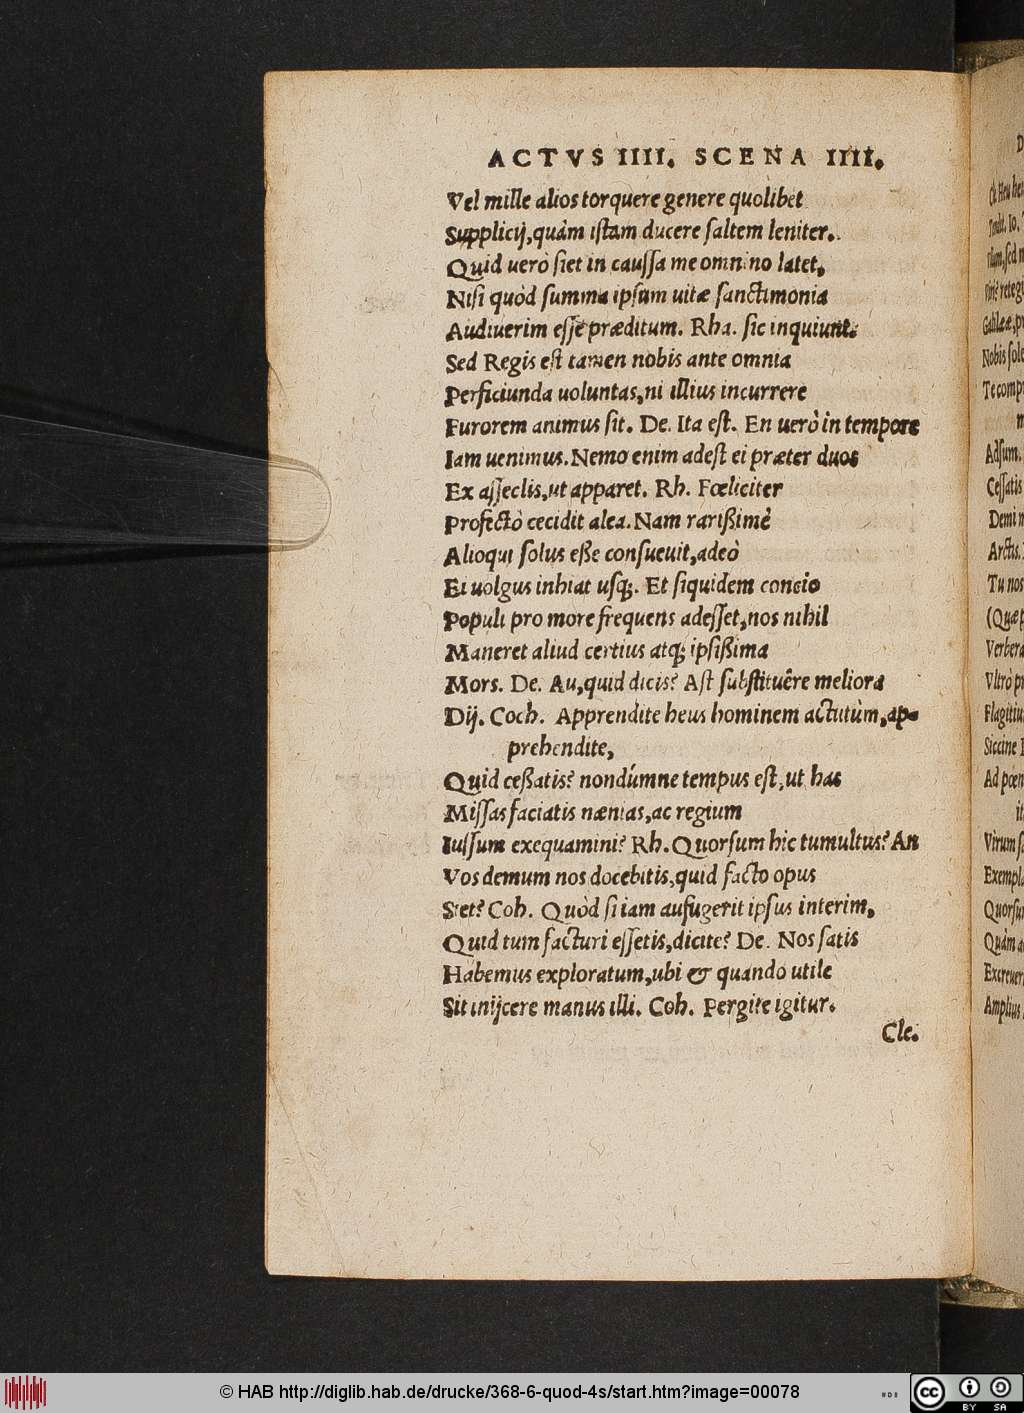 ACTVS IIII. SCENA IIII.
Vel mille alios torquere genere quolibet
Supplicij, quàm istam ducere saltem leniter.
Quid uerò siet in caussa me omnino latet,
Nisi quòd summa ipsum uitæ sanctimonia
Audiuerim esse præditum. Rha. sic inquiunt.
Sed Regis est tamen nobis ante omnia
Perficiunda uoluntas, ni illius incurrere
Furorem animus sit. De. Ita est. En uerò in tempore
Iam uenimus. Nemo enim adest ei præter duos
Ex asseclis, ut apparet. Rh. Fœliciter
Profectò cecidit alea. Nam rarißimè
Alioqui solus eße consueuit, adeò
Ei uolgus inhiat usq;. Et siquidem concio
Populi pro more frequens adesset, nos nihil
Maneret aliud certius atq; ipsißima
Mors. De. Au, quid dicis? Ast substituêre meliora
Dij. Coch. Apprendite heus hominem actutùm, ap-
prehendite,
Quid ceßatis? nondúmne tempus est, ut has
Missas faciatis nænias, ac regium
Iussum exequamini? Rh. Quorsum hic tumultus? An
Vos demum nos docebitis, quid facto opus
Siet? Coh. Quòd si iam aufugerit ipsus interim,
Quid tum facturi essetis, dicite? De. Nos satis
Habemus exploratum, ubi & quando utile
Sit inijcere manus illi. Coh. Pergite igitur.
Cle.
Adsum.
Cessatis
Demi
Arctis.
Tu nos
Verbera
Vltrò
Siccine
Exempla
Quàm
Amplius
© HAB http://diglib.hab.de/drucke/368-6-quod-4s/start.htm?image=00078
cc BY SA